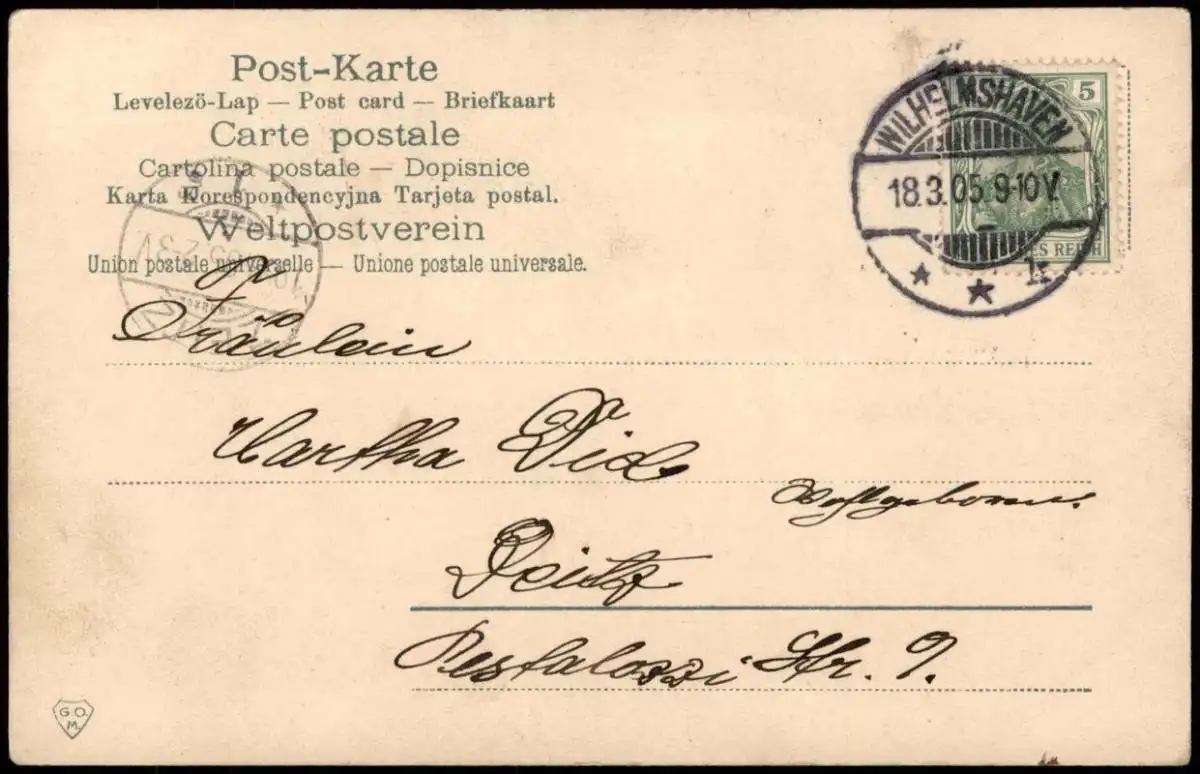 Post-Karte
Levelező-Lap — Post card — Briefkaart
Carte postale
Cartolina postale — Dopisnice
Karta Korespondencyjna Tarjeta postal.
Weltpostverein
Union postale universelle — Unione postale universale.
WILHELMSHAVEN
18.3.05.9-10V.
* * 1r
5
ES REICH
Fräulein
Martha
Wohlgeboren.
Pestalozzi Str. 9.
G.O.
M.